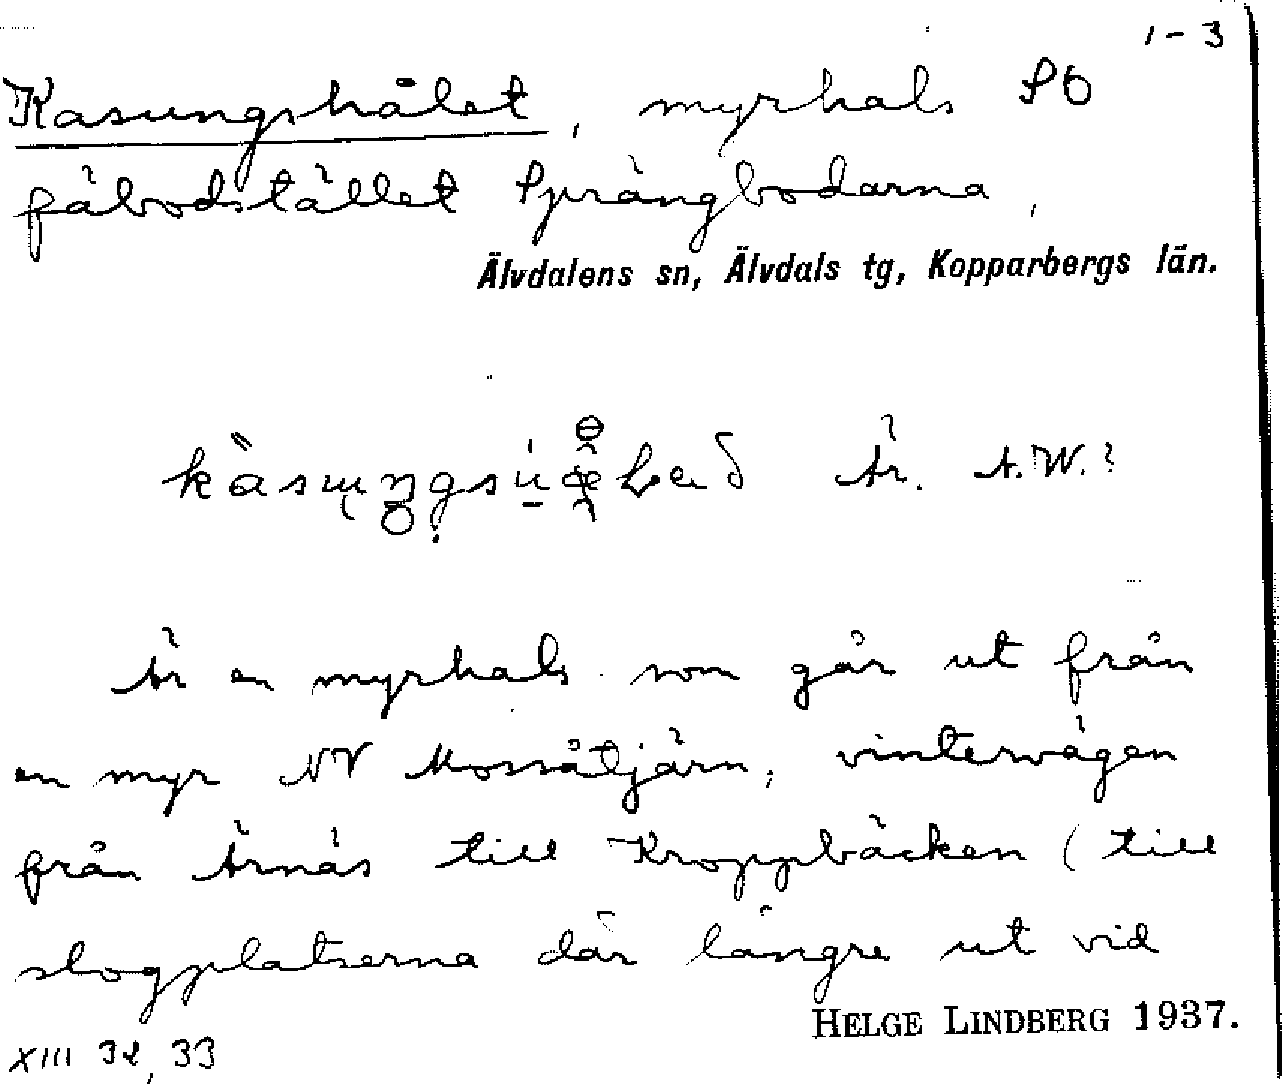 1-3
Kasungshålet, myrhals SO
fäbodstället Sprängbodarna,
Älvdalens sn, Älvdals tg, Kopparbergs län.
Är.
Är en myrhals som går ut från
en myr NV Mossåtjärn, vintervägen
från Ärnäs till Kroppbäcken (till
slogplatserna där längre ut vid
HELGE LINDBERG 1937.
XIII 32, 33